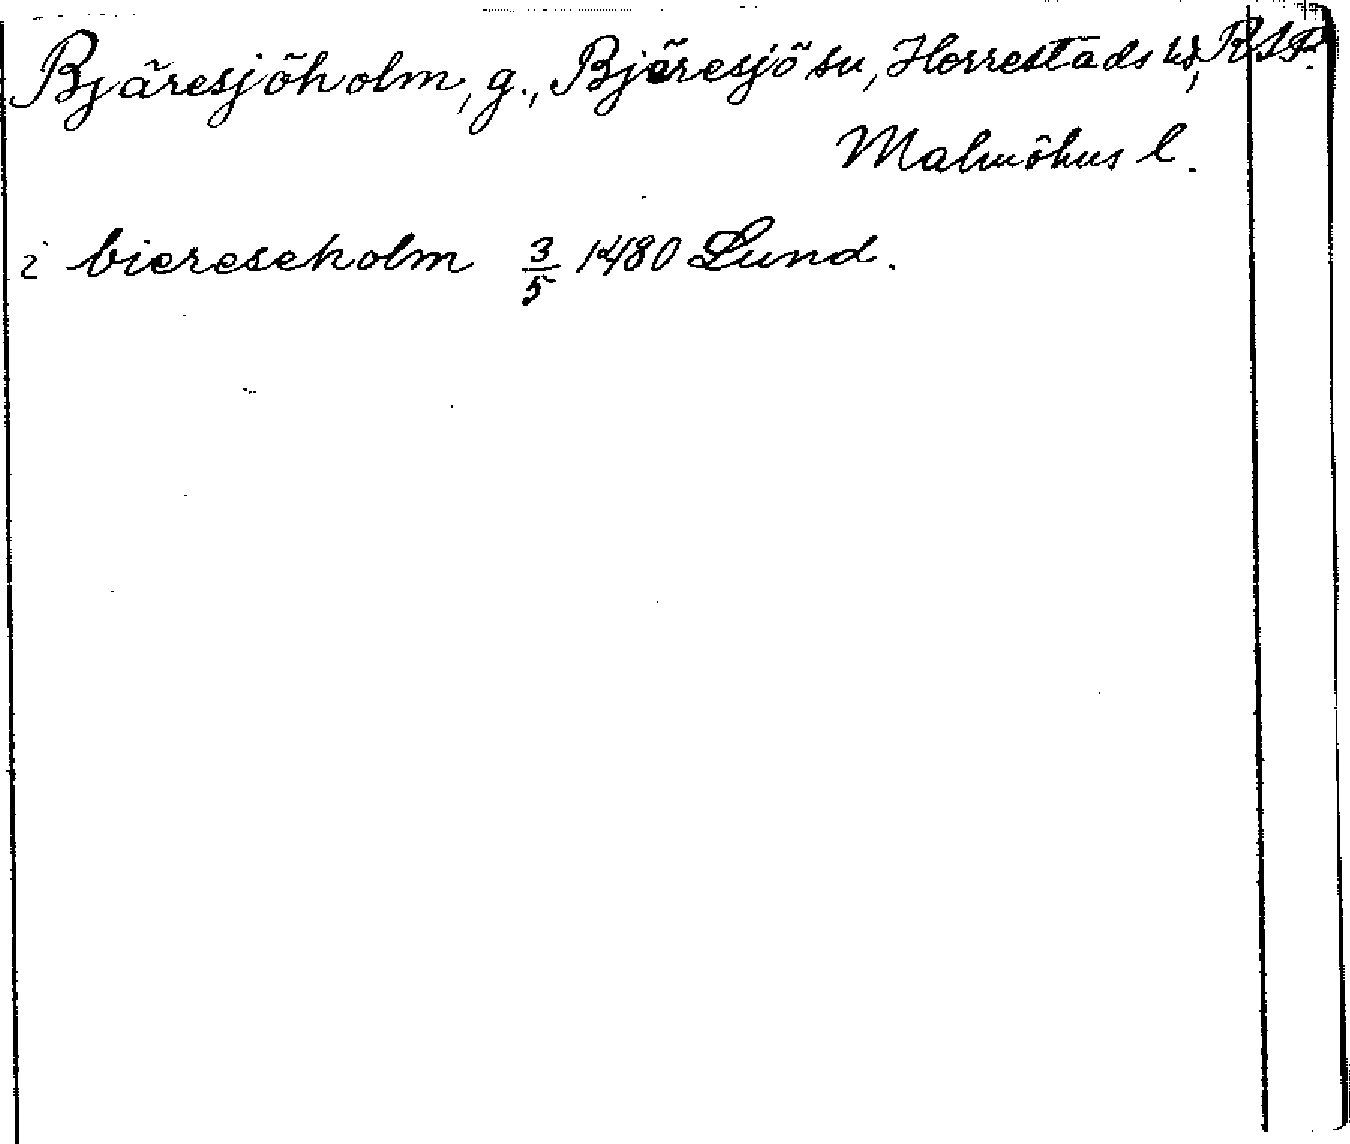 Bjäresjöholm, g., Bjäresjö sn, Herrestads hd,
Malmöhus l.
i biereseholm 3/5 1480 Lund.